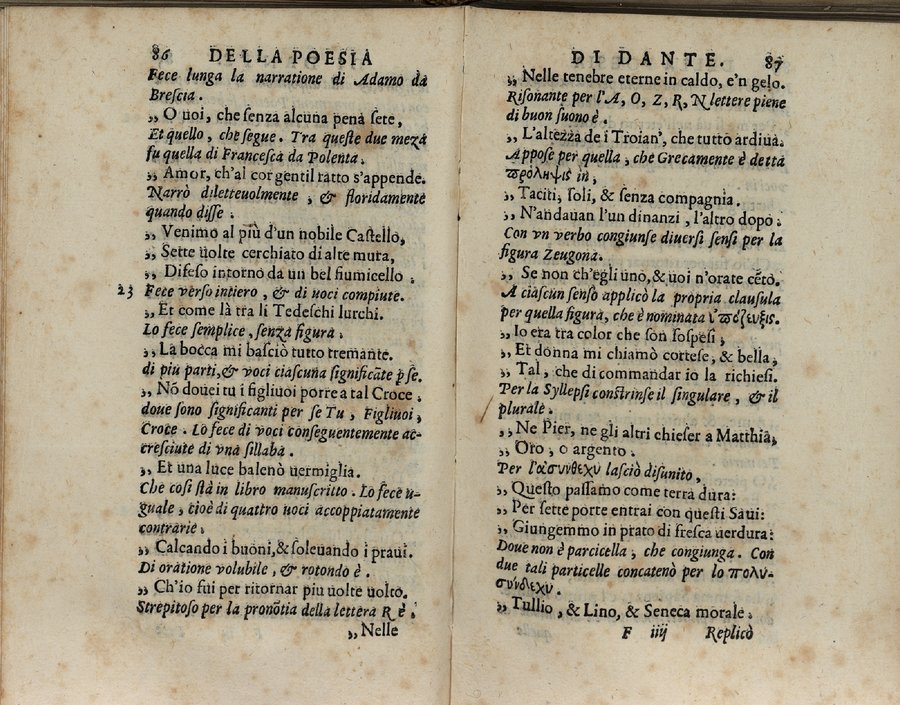 86 DELLA POESIA
Fece lunga la narratione di Adamo da
Brescia.
,, O uoi, che senza alcuna pena sete,
Et quello, che segue. Tra queste due mezà
fu quella di Francesca da Polenta.
,, Amor, ch'al cor gentil ratto s'appende.
Narrò diletteuolmente, & floridamente
quando disse:
,, Venimo al più d'un nobile Castello,
,, Sette uolte cerchiato di alte mura,
,, Difeso intorno da un bel fiumicello.
23 Fece verso intiero, & di uoci compiute.
,, Et come là tra li Tedeschi lurchi.
Lo fece semplice, senza figura.
,, La bocca mi basciò tutto tremante.
di più parti, & voci ciascuna significāte p se.
,, Nō douei tu i figliuoi porre a tal Croce,
doue sono significanti per se Tu, Figliuoi,
Croce. Lo fece di voci conseguentemente ac-
cresciute di vna sillaba.
,, Et una luce balenò uermiglia.
Che cosi stà in libro manuscritto. Lo fece u-
guale, cioè di quattro uoci accoppiatamente
contrarie.
,, Calcando i buoni, & soleuando i praui.
Di oratione volubile, & rotondo è.
,, Ch'io fui per ritornar più uolte uolto.
Strepitoso per la pronōtia della lettera R è.
,, Nelle
DI DANTE. 87
,, Nelle tenebre eterne in caldo, e'n gelo.
Risonante per l'A, O, Z, R, N lettere piene
di buon suono è.
,, L'altezza de i Troian', che tutto ardiua.
Appose per quella, che Grecamente è detta
πρόληψις in,
,, Taciti, soli, & senza compagnia.
,, N'andauan l'un dinanzi, l'altro dopo.
Con vn verbo congiunse diuersi sensi per la
figura Zeugona.
,, Se non ch'egli uno, & uoi n'orate cēto.
A ciascun senso applicò la propria clausula
per quella figura, che è nominata ὑπόζευξις.
,, Io era tra color che son sospesi,
,, Et donna mi chiamò cortese, & bella,
,, Tal, che di commandar io la richiesi.
Per la Syllepsi constrinse il singulare, & il
plurale.
,, Ne Pier, ne gli altri chieser a Matthia,
,, Oro, o argento.
Per l'ασυνθεχυ lasciò disunito,
,, Questo passamo come terra dura:
,, Per sette porte entrai con questi Saui:
,, Giungemmo in prato di fresca uerdura:
Doue non è parcicella, che congiunga. Con
due tali particelle concatenò per lo πολυ-
συνδεχυ.
,, Tullio, & Lino, & Seneca morale.
F iiij Replicò